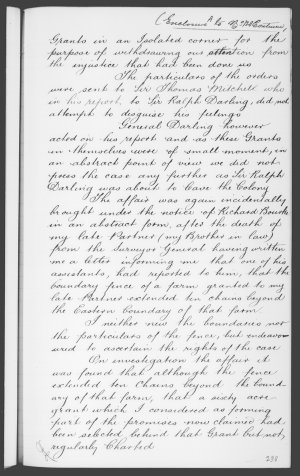 (Enclosure to
Grants in an Isolated corner for the
purpose of withdrawing our attention from
the injustice that had been done us
The particulars of the orders
were sent to Sir Thomas Mitchell who
in his report, to Sir Ralph Darling, did not
attempt to disguise his feelings
General Darling however
acted on his report and as these Grants
in themselves were of small moment, in
an abstract point of view we did not
press the case any further as Sir Ralph
Darling was about to leave the Colony
The affair was again incidentally
brought under the notice of Richard Bourke
in an abstract form, after the death of
my late Partner (my Brother in law)
from the Surveyor General having written
me a letter informing me that one of his
assistants, had reported to him, that the
boundary fence of a farm granted to my
late Partner extended ten chains beyond
the Eastern boundary of that farm.
I neither new the boundaries nor
the particulars of the fence, but endeavou
ured to ascertain the rights of the case
On investigation the affair it
was found that although the fence
extended ten chains beyond the bound
ary of that farm, that a sixty acre
grant which I considered as forming
part of the promises now claimed had
been selected behind that Grant but not
regularly Charted
238